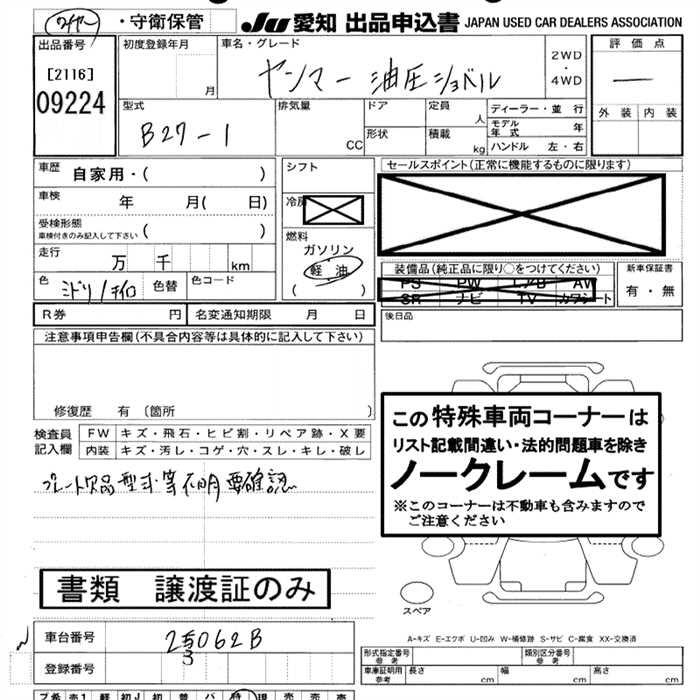 ワイヤー ・守衛保管 JU 愛知 出品申込書 JAPAN USED CAR DEALERS ASSOCIATION
出品番号
[2116]
09224
初度登録年月
月
車名・グレード
ヤンマー 油圧ショベル
2WD
・
4WD
評価点
外装 内装
型式
B27-1
排気量
CC
ドア
形状
定員
人
積載
kg
ディーラー・並 行
モデル年式 年
ハンドル 左・右
車歴 自家用・( )
車検 年 月( 日)
受検形態
車検付きのみ記入して下さい ( )
走行 万 千 km
色 ミドリ/キイロ 色替 色コード
シフト
冷房
燃料
ガソリン
軽 油
( )
セールスポイント(正常に機能するものに限ります)
装備品(純正品に限り○をつけてください)
PS PW L/B AW
SR ナビ TV カワシート
新車保証書
有・無
R券 円 名変通知期限 月 日
後日品
注意事項申告欄(不具合内容等は具体的に記入して下さい)
修復歴 有 〔箇所 〕
検査員
記入欄
FW キズ・飛石・ヒビ割・リペア跡・X要
内装 キズ・汚レ・コゲ・穴・スレ・キレ・破レ
プレート欠品 型式等不明 要確認
この特殊車両コーナーは
リスト記載間違い・法的問題車を除き
ノークレームです
※このコーナーは不動車も含みますので
ご注意ください
スペア
書類 譲渡証のみ
A-キズ E-エクボ U-凹み W-補修跡 S-サビ C-腐食 XX-交換済
車台番号
登録番号
形式指定番号
参考
類別区分番号
参考
車庫証明用
参考
長さ cm 幅 cm 高さ cm